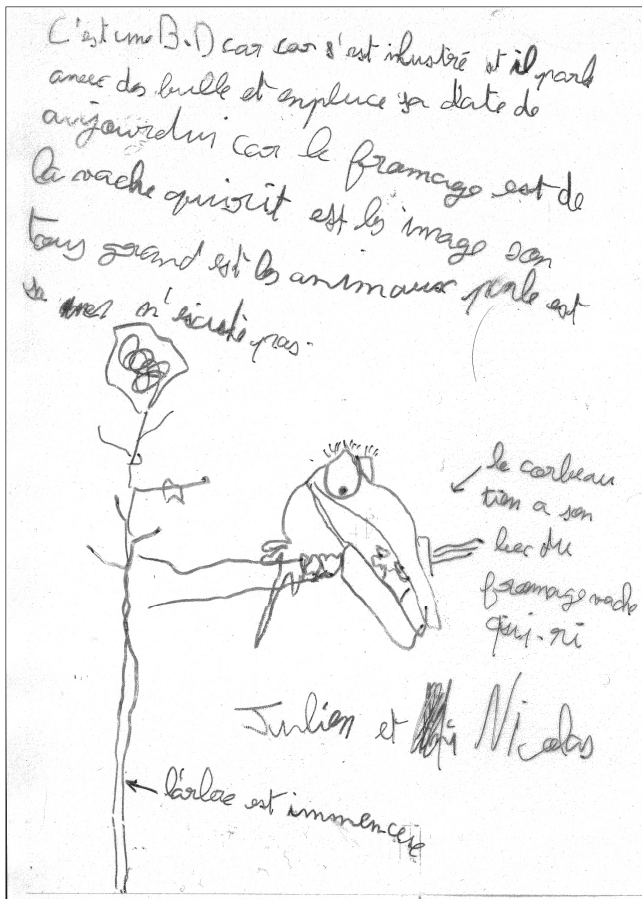 C'est une B.D car car s'est ilustré et il parle
avec des bulle et enpluce sa date de
aujourdui car le fromage est de
la vache quirit est les image son
tous grand est les animaux parle est
sa n'éxiste pas.
le corbeau
tien a son
bec du
fromage vache
qui-ri
Julien et Nicolas
l'arbre est immence